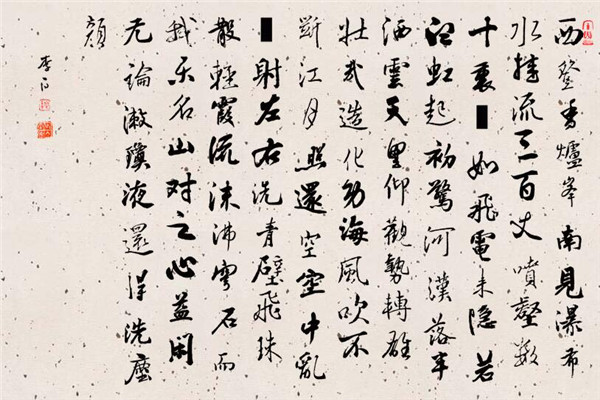 西登香爐峯南見瀑布
水挂流三百丈噴壑數
十裏▮如飛電来隐若
白虹起初驚河漢落半
洒雲天里仰觀勢轉雄
壮哉造化功海風吹不
斷江月照還空空中亂
▮射左右洗青壁飛珠
散輕霞流沫沸穹石而
我乐名山对之心益閑
无論漱瓊液還得洗塵
顔
李白